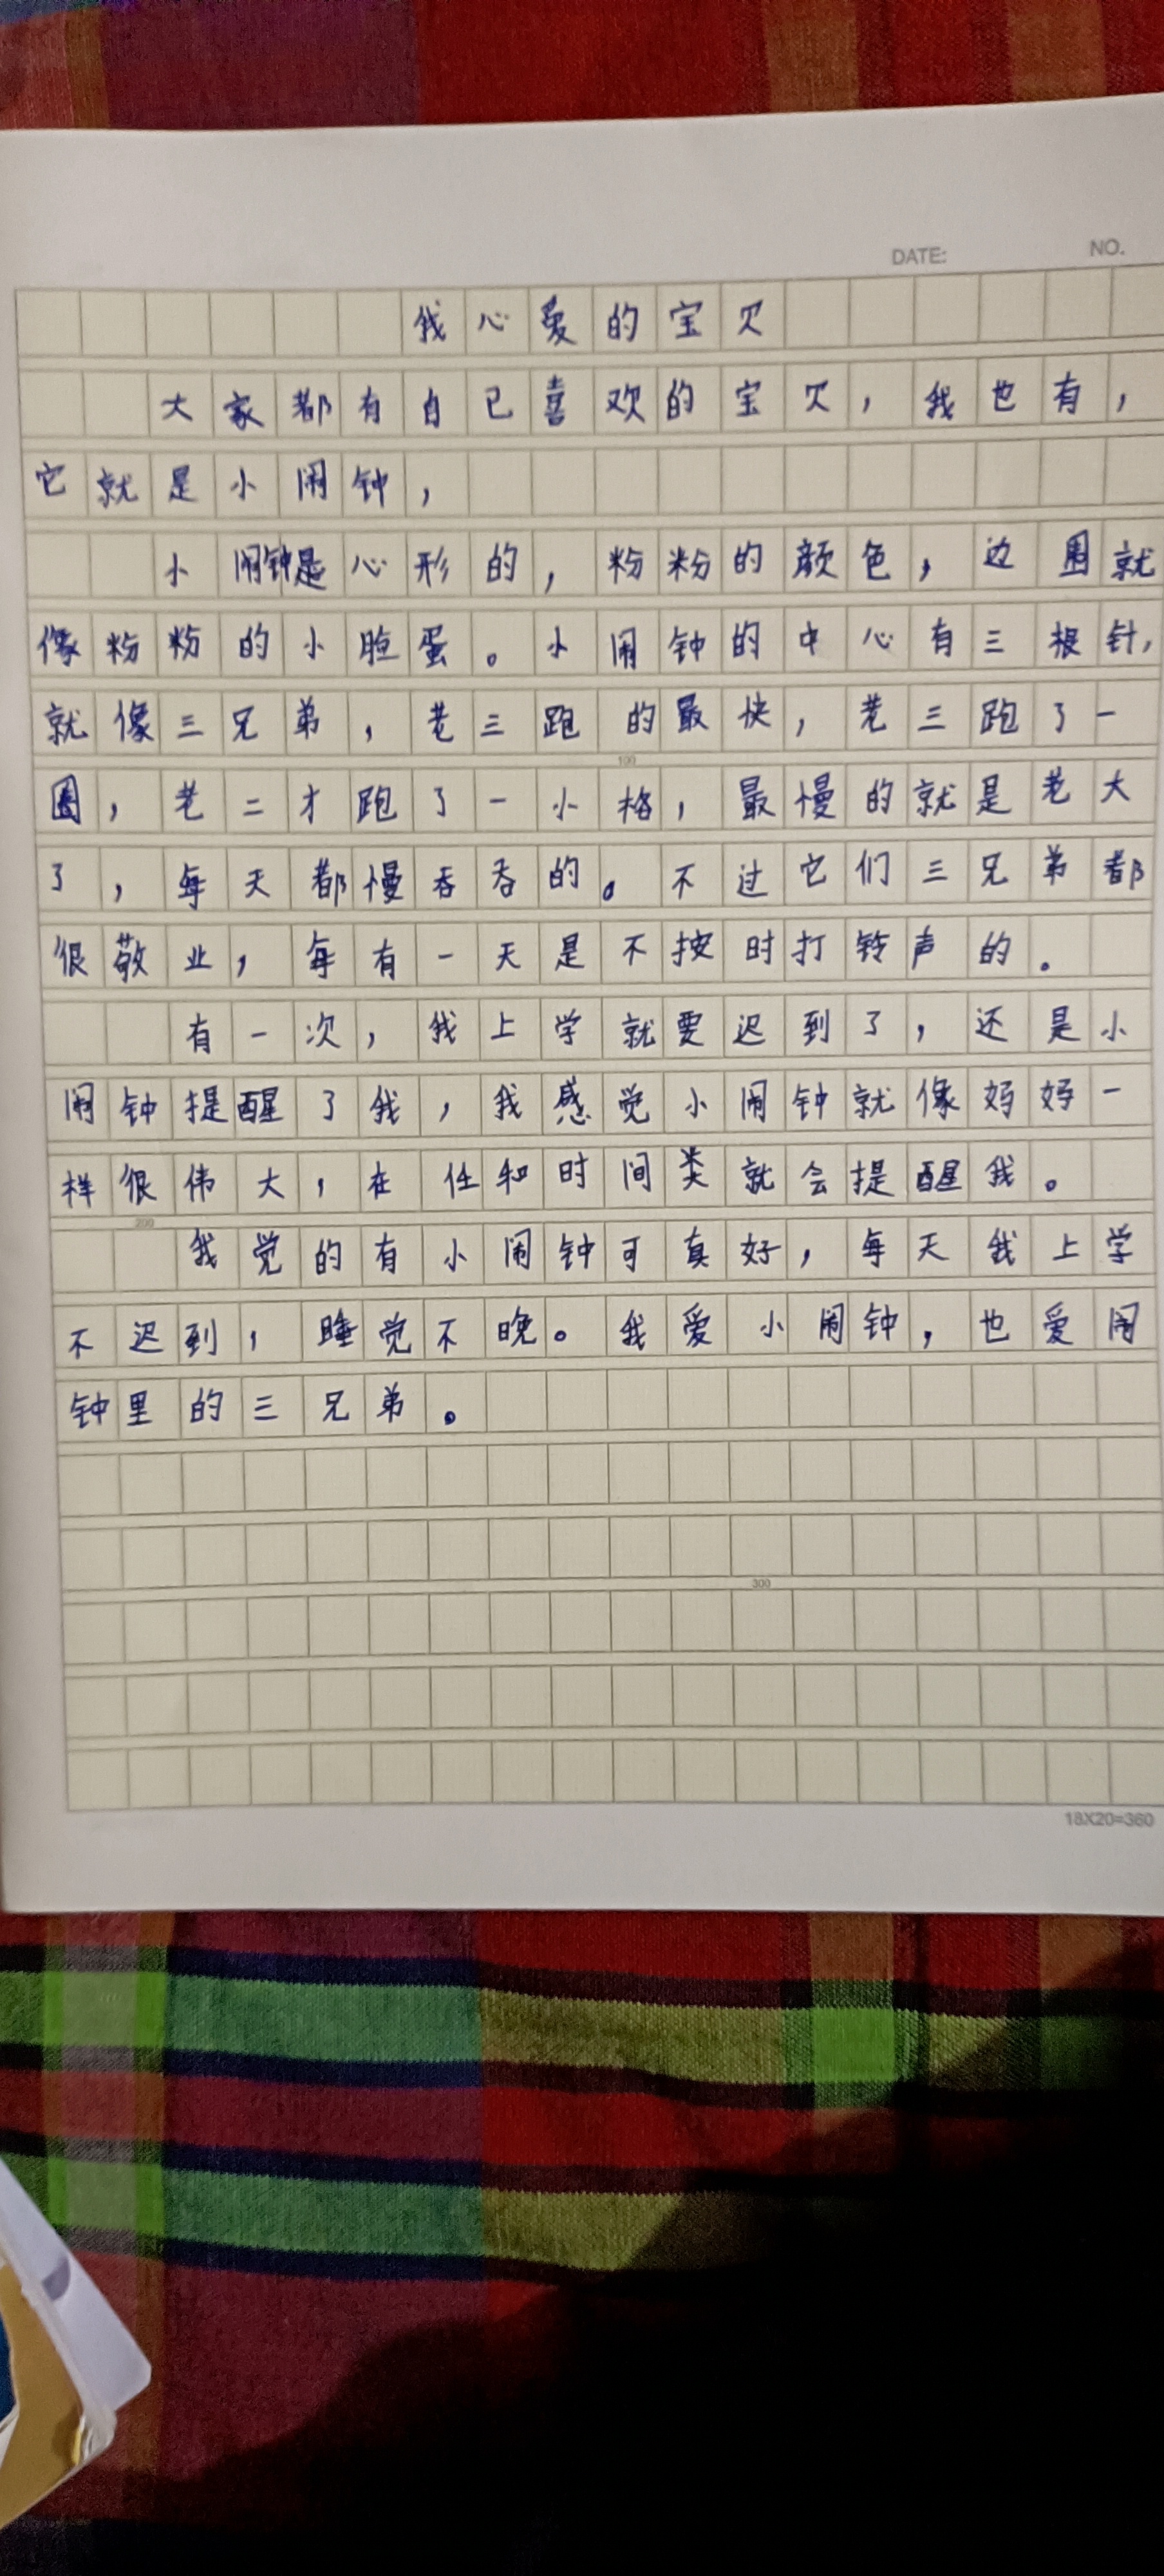 DATE: NO.
我心爱的宝贝
大家都有自己喜欢的宝贝，我也有，
它就是小闹钟，
小闹钟是心形的，粉粉的颜色，边围就
像粉粉的小脸蛋。小闹钟的中心有三根针，
就像三兄弟，老三跑的最快，老三跑了一
100
圈，老二才跑了一小格，最慢的就是老大
了，每天都慢吞吞的。不过它们三兄弟都
很敬业，每有一天是不按时打铃声的。
有一次，我上学就要迟到了，还是小
闹钟提醒了我，我感觉小闹钟就像妈妈一
样很伟大，在任和时间类就会提醒我。
200
我觉的有小闹钟可真好，每天我上学
不迟到，睡觉不晚。我爱小闹钟，也爱闹
钟里的三兄弟。
300
18X20=360